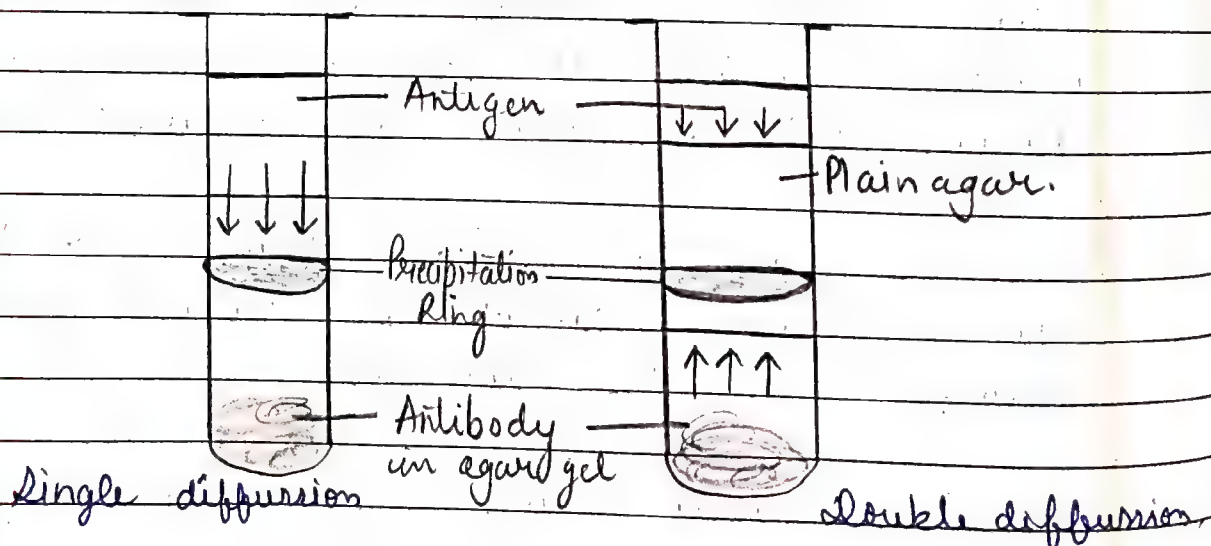 Antigen
Plain agar.
Precipitation
Ring
Antibody
in agar gel
Single diffussion
Double diffussion